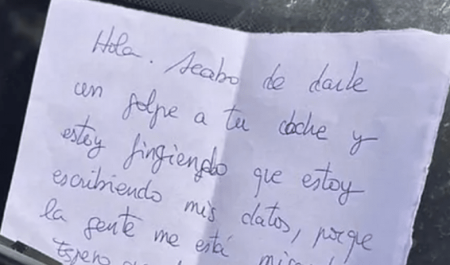 Hola. Acabo de darle
un golpe a tu coche y
estoy fingiendo que estoy
escribiendo mis datos, porque
la gente me está
Espero que